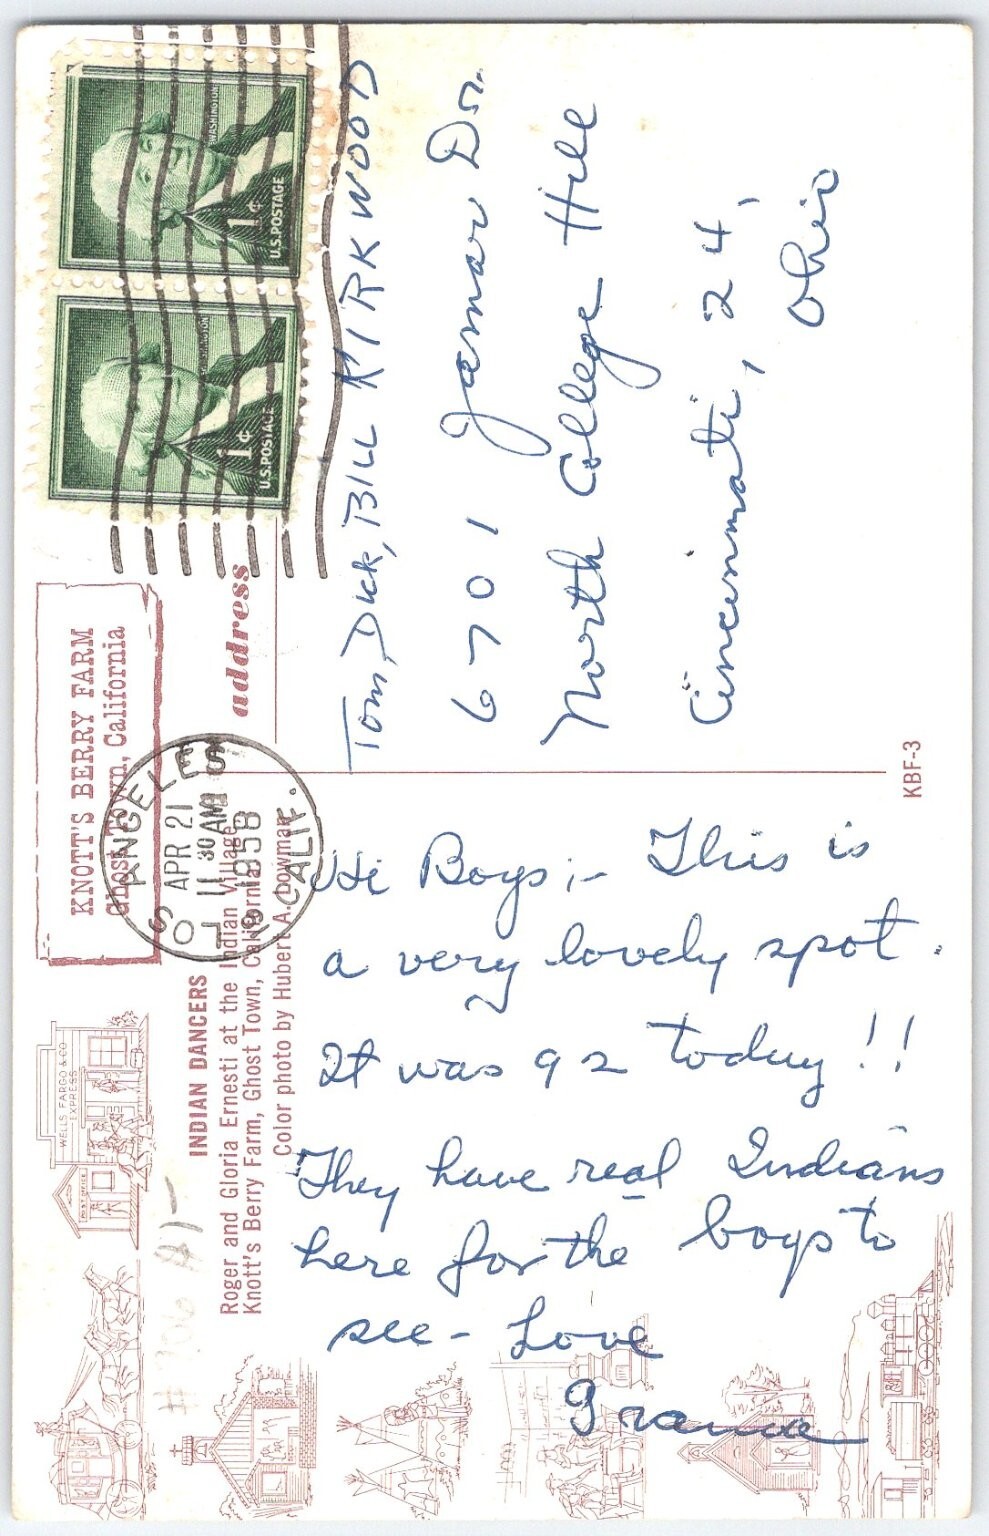 KNOTT'S BERRY FARM
Ghost Town, California
INDIAN DANCERS
Roger and Gloria Ernesti at the Indian Village,
Knott's Berry Farm, Ghost Town, California.
Color photo by Hubert A. Lowman
Hi Boys;- This is
a very lovely spot.
It was 92 today!!
They have real Indians
here for the boys to
see - Love
WELLS FARGO & CO
EXPRESS
POST OFFICE
LOS ANGELES
APR 21
11 30 AM
1958
CALIF.
WASHINGTON
1¢
U.S.POSTAGE
WASHINGTON
1¢
U.S.POSTAGE
address
Tom, Dick, BILL KIRKWOOD
6701 Jamar Dr.
North College Hill
Cincinnati, 24,
Ohio
KBF-3